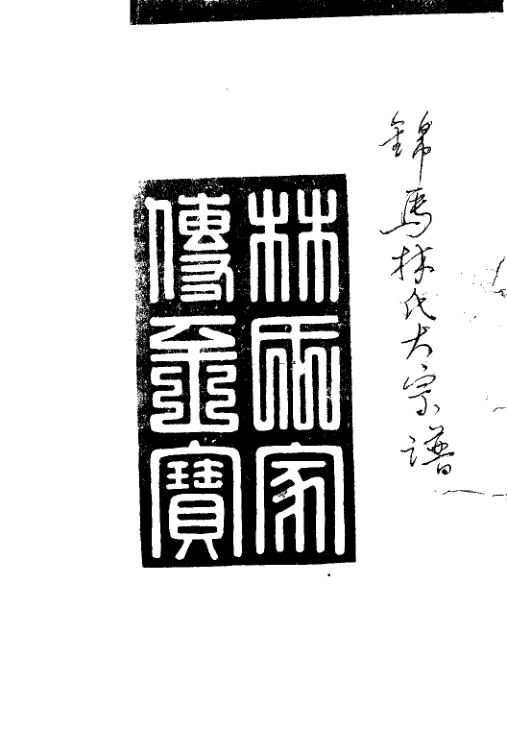 錦馬林氏大宗譜
林氏家
傳金寶